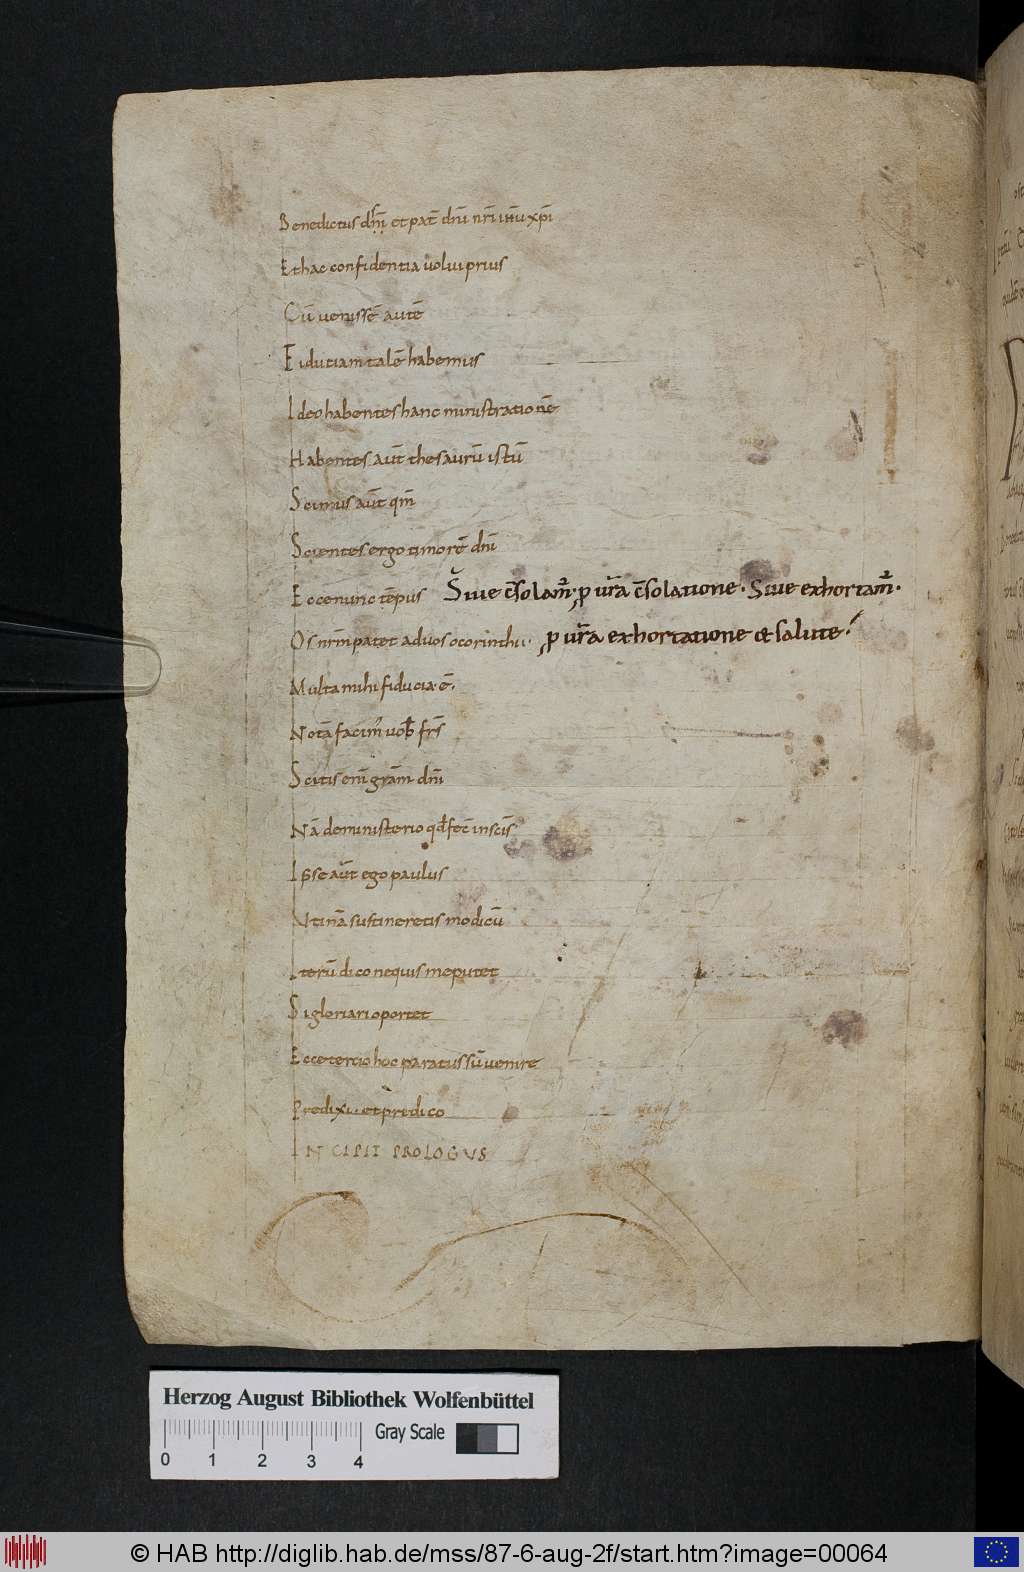 Benedictus dn̄s et pat̄ dn̄i nr̄i ih̄u xp̄i
Et hac confidentia uolui prius
Cū uenissē autē
Fiduciam talē habemus
Ideo habentes hanc ministrationē
Habentes aūt thesaurū istū
Scimus aūt qm̄
Scientes ergo timorē dn̄i
Ecce nunc tēpus Siue c̄solam̄ ꝓ ur̄a c̄solatione. Siue exhortam̄.
Os nr̄m patet ad uos o corinthii. ꝓ ur̄a exhortatione et salute.
Multa mihi fiducia ē.
Notā facim̄ uob̄ fr̄s
Scitis eni̅ gr̄am dn̄i
Nā de ministerio qd̄ fec̄ in sc̄is
Ipse aūt ego paulus
Utinā sustineretis modicū
Iterū dico ne quis me putet
Si gloriari oportet
Ecce tercio hoc paratus sū uenire
Predixi et predico
INCIPIT PROLOGUS
Herzog August Bibliothek Wolfenbüttel
Gray Scale
0 1 2 3 4
© HAB http://diglib.hab.de/mss/87-6-aug-2f/start.htm?image=00064